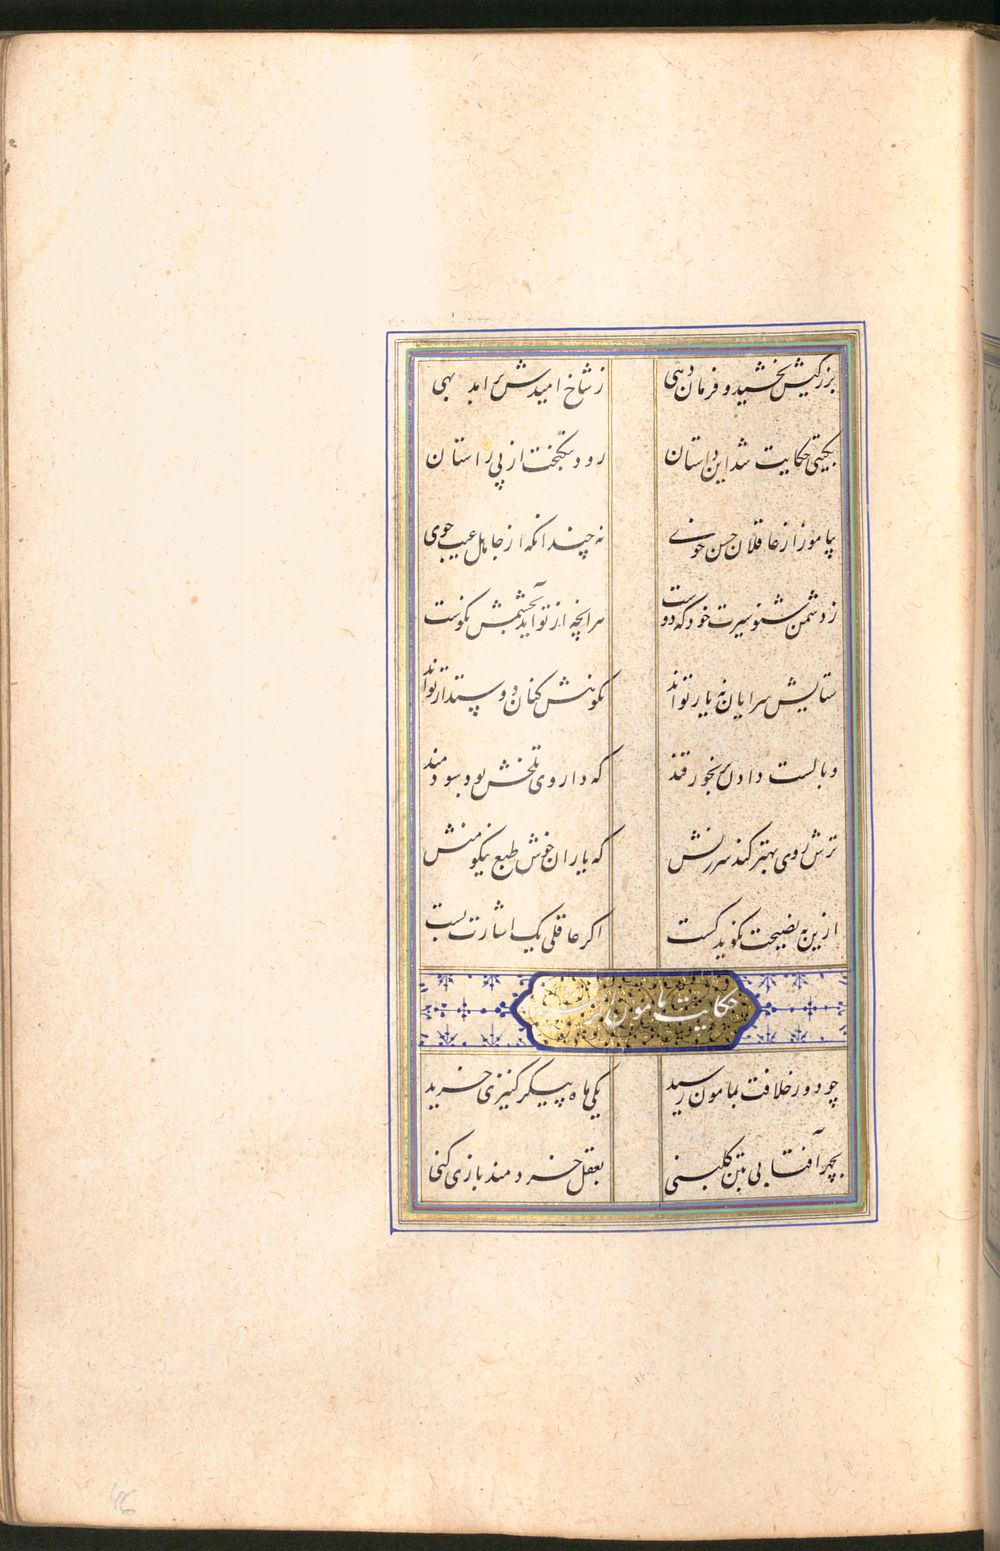 بزرگیش بخشید و فرمان دهی ز شاخ امیدش برامد بهی
بگیتی حکایت شد این داستان رود نیکبخت از پی راستان
بیاموز از عاقلان حسن خوی نه چندانکه از جاهل عیب جوی
ز دشمن شنو سیرت خود که دوست هرانچه از تو آید بچشمش نکوست
ستایش سرایان نه یار تواند نکوهش کنان دوستدار تواند
وبالست دادن برنجور قند که داروی تلخش بود سودمند
ترش روی بهتر کند سرزنش که یاران خوش طبع نیکو منش
ازین به نصیحت نگوید کست اگر عاقلی یک اشارت بست
حکایت مامون
چو دور خلافت بمامون رسید یکی ماه پیکر کنیزی خرید
بچهر آفتابی بتن گلبنی بعقل خردمند بازی کنی
46